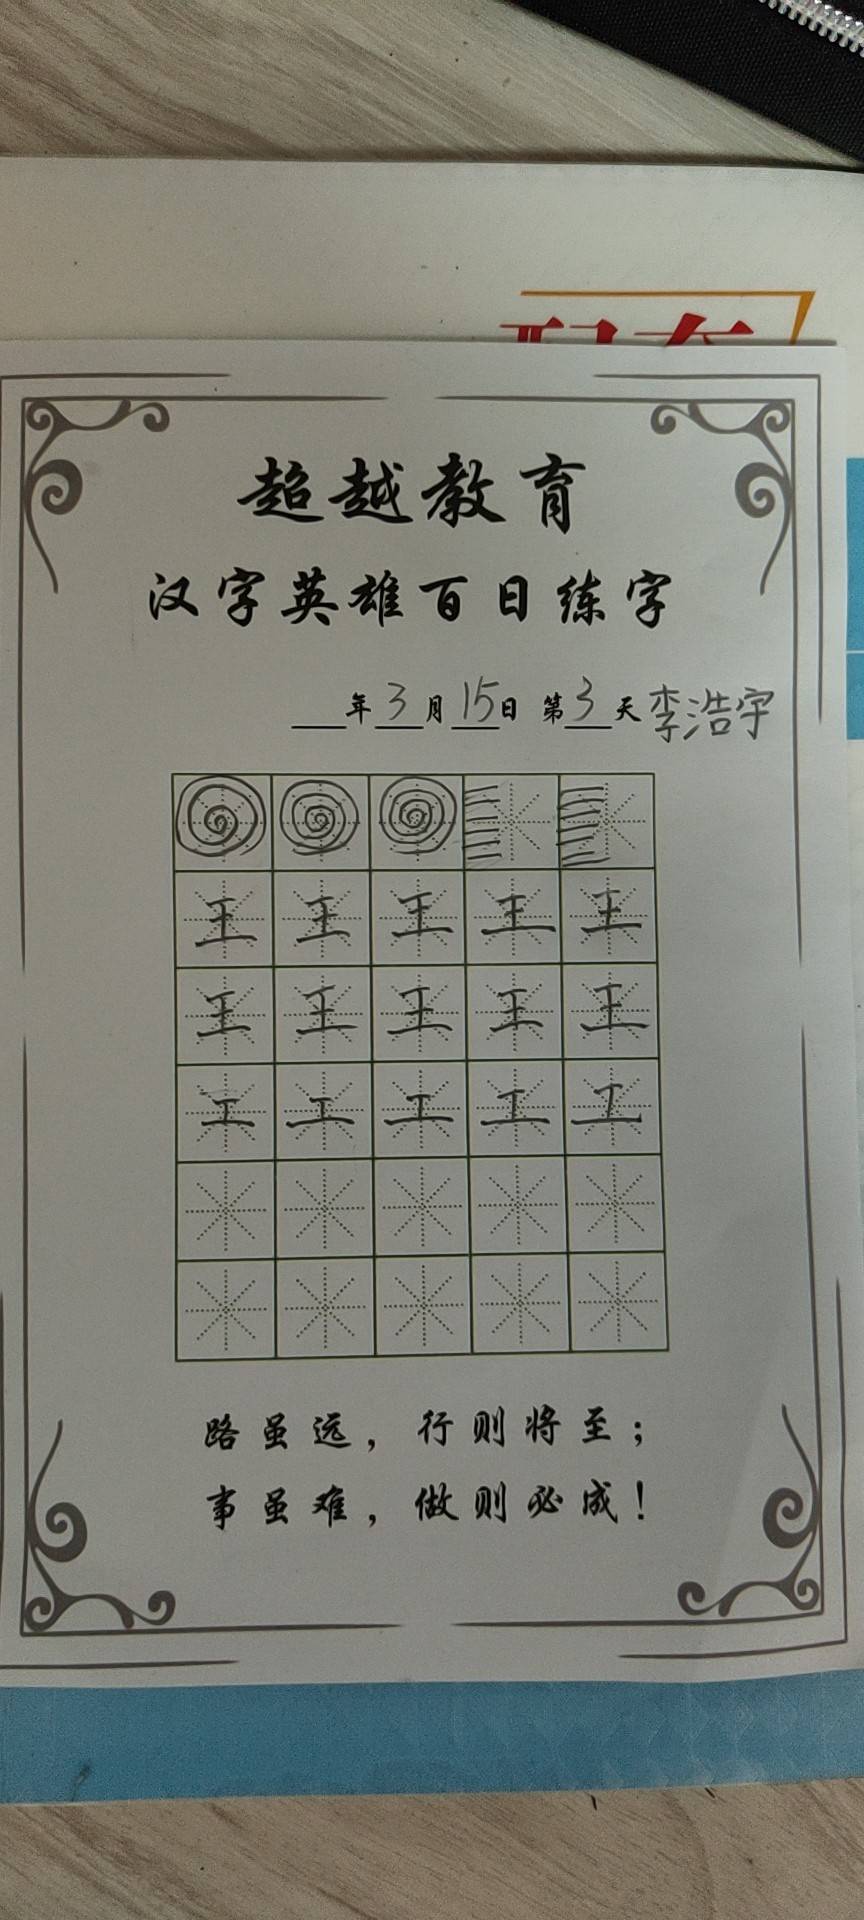 超越教育
汉字英雄百日练字
年3月15日 第3天 李浩宇
王王王王王
王王王王王
工工工工工
路虽远，行则将至；
事虽难，做则必成！